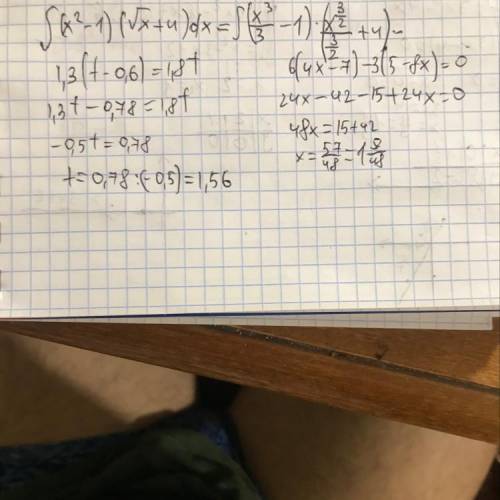 ∫(x²-1)(√x+4)dx=∫(x³/3-1)·(x^(3/2)/(3/2)+4)-
1,3(t-0,6)=1,8t
1,3t-0,78=1,8t
-0,5t=0,78
t=0,78:(-0,5)=1,56
6(4x-7)-3(5-8x)=0
24x-42-15+24x=0
48x=15+42
x=57/48=1 9/48